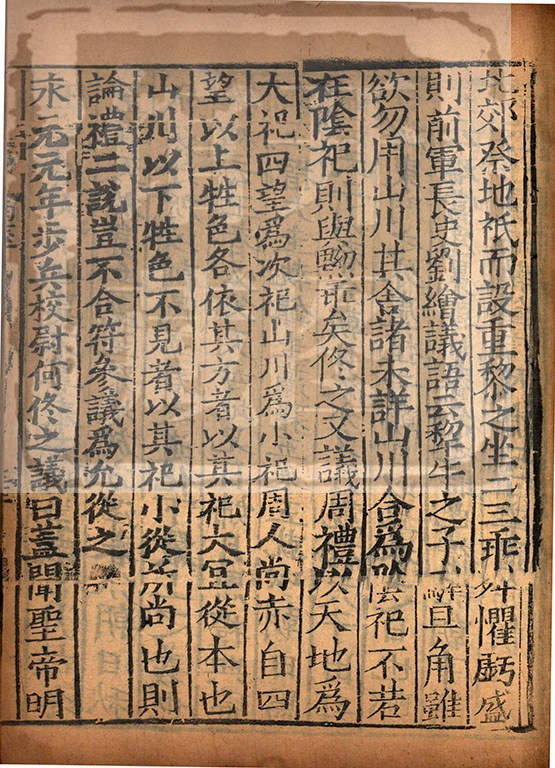 北郊祭地祇而設重黎之坐二三乖舛懼虧盛
則前軍長史劉繪議語云犂牛之子騂且角雖
欲勿用山川其舍諸未詳山川合爲陰祀不若
在陰祀則與黝乖矣佟之又議周禮以天地爲
大祀四望爲次祀山川爲小祀周人尚赤自四
望以上牲色各依其方者以其祀大宜從本也
山川以下牲色不見者以其祀小從所尚也則
論禮二說豈不合符參議爲允從之
永元元年步兵校尉何佟之議曰蓋聞聖帝明